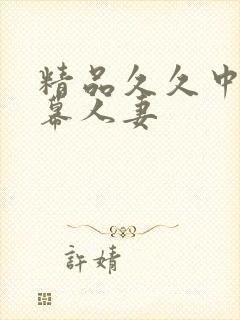 精品久久中
幕人妻
許婧